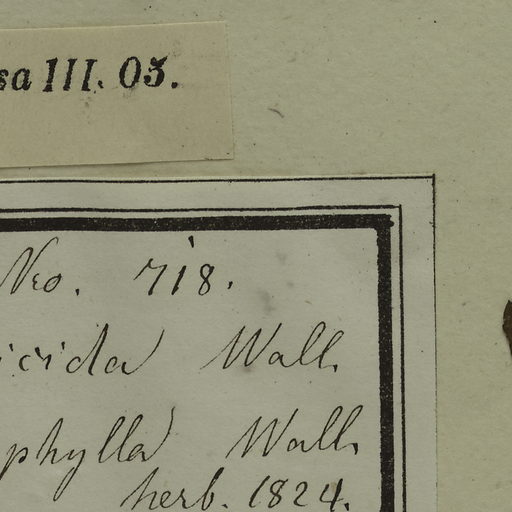 sa III. 03.
Nro. 718.
icida Wall.
phylla Wall.
herb. 1824.